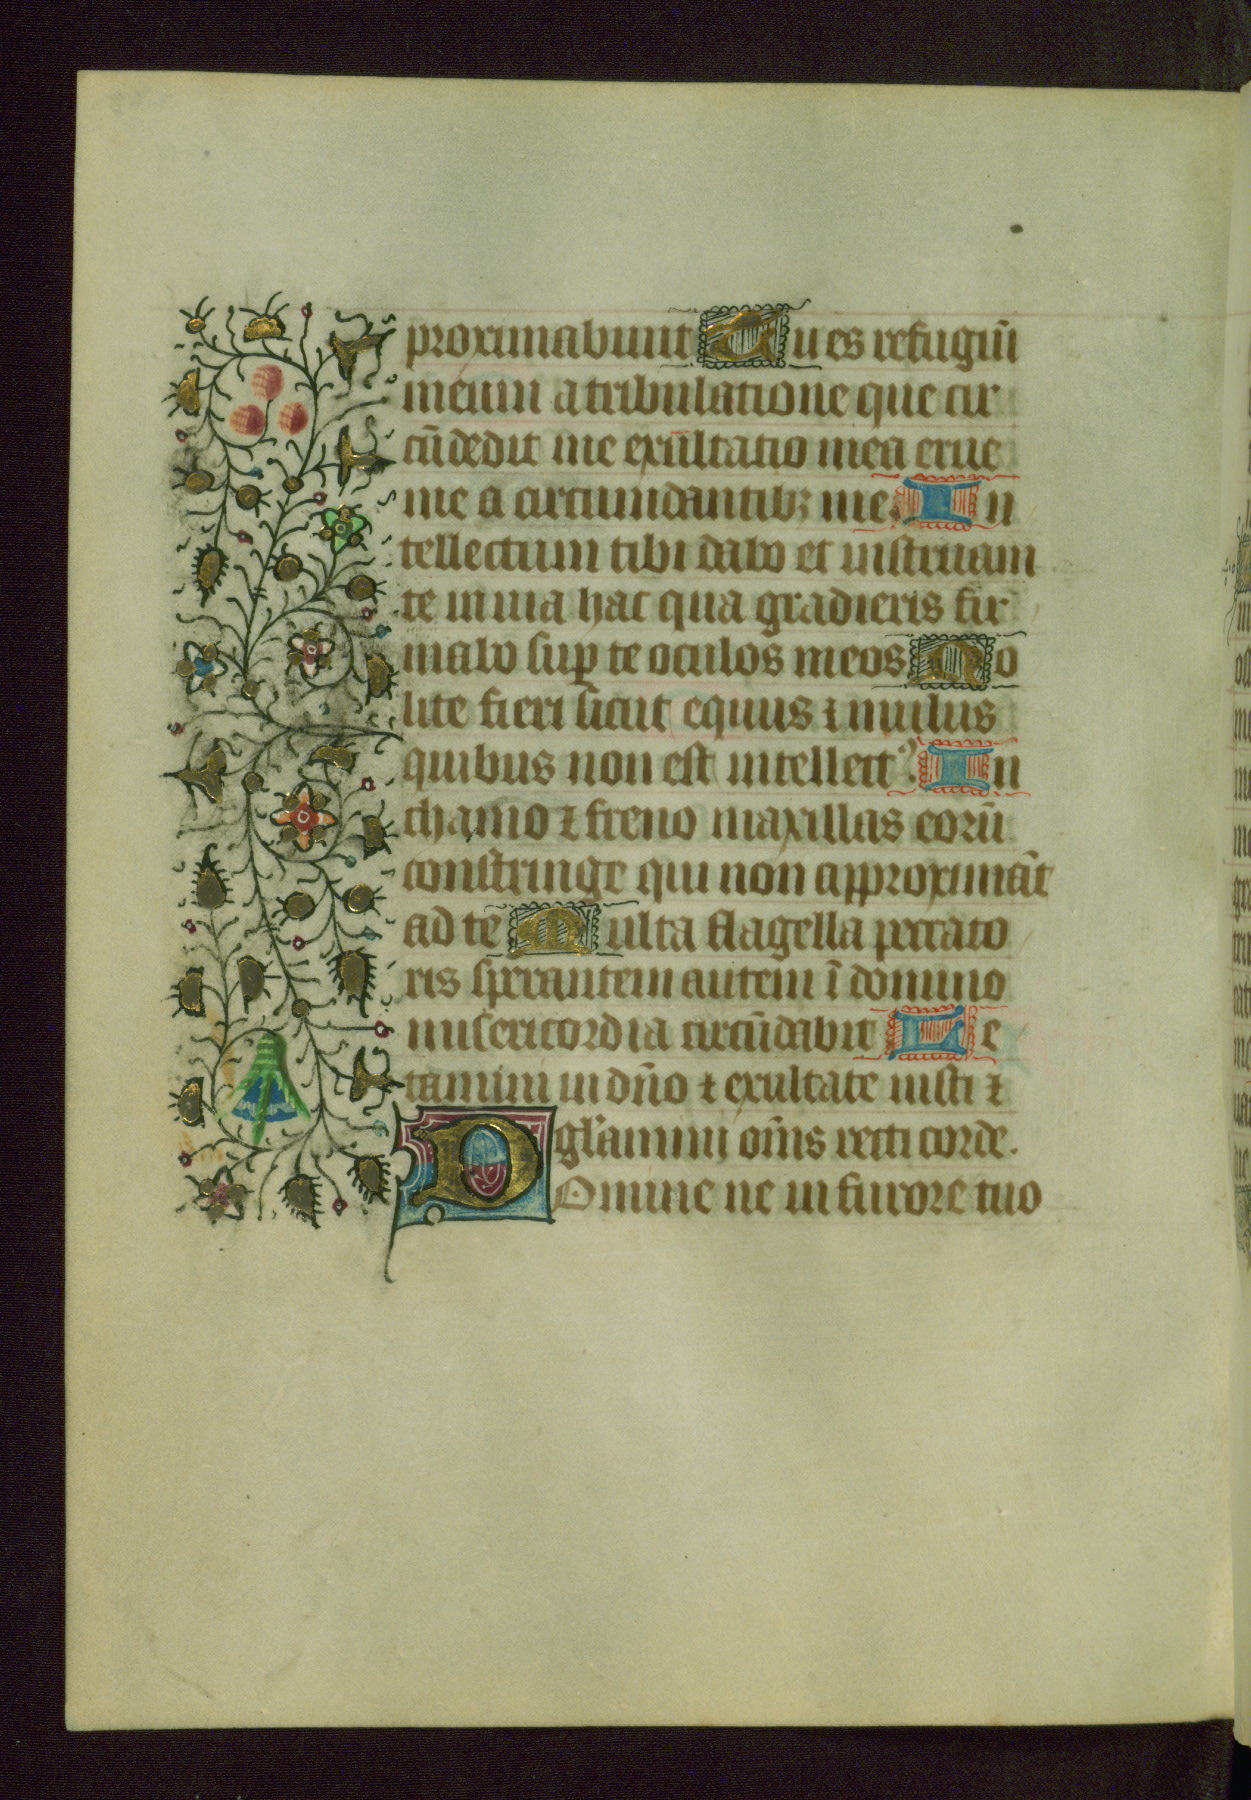 proximabunt Tu es refugiū
meum a tribulatione que cir
cūdedit me exultatio mea erue
me a circumdantibꝫ me. In
tellectum tibi dabo et instruam
te in uia hac qua gradieris fir
mabo suꝑ te oculos meos No
lite fieri sicut equus ⁊ mulus
quibus non est intellectꝰ. In
chamo ⁊ freno maxillas eorū
constringe qui non approximāt
ad te Multa flagella peccato
ris sperantem autem ī domino
misericordia circūdabit Le
tamini in dn̄o ⁊ exultate iusti ⁊
gl̄amini om̄s recti corde.
Domine ne in furore tuo